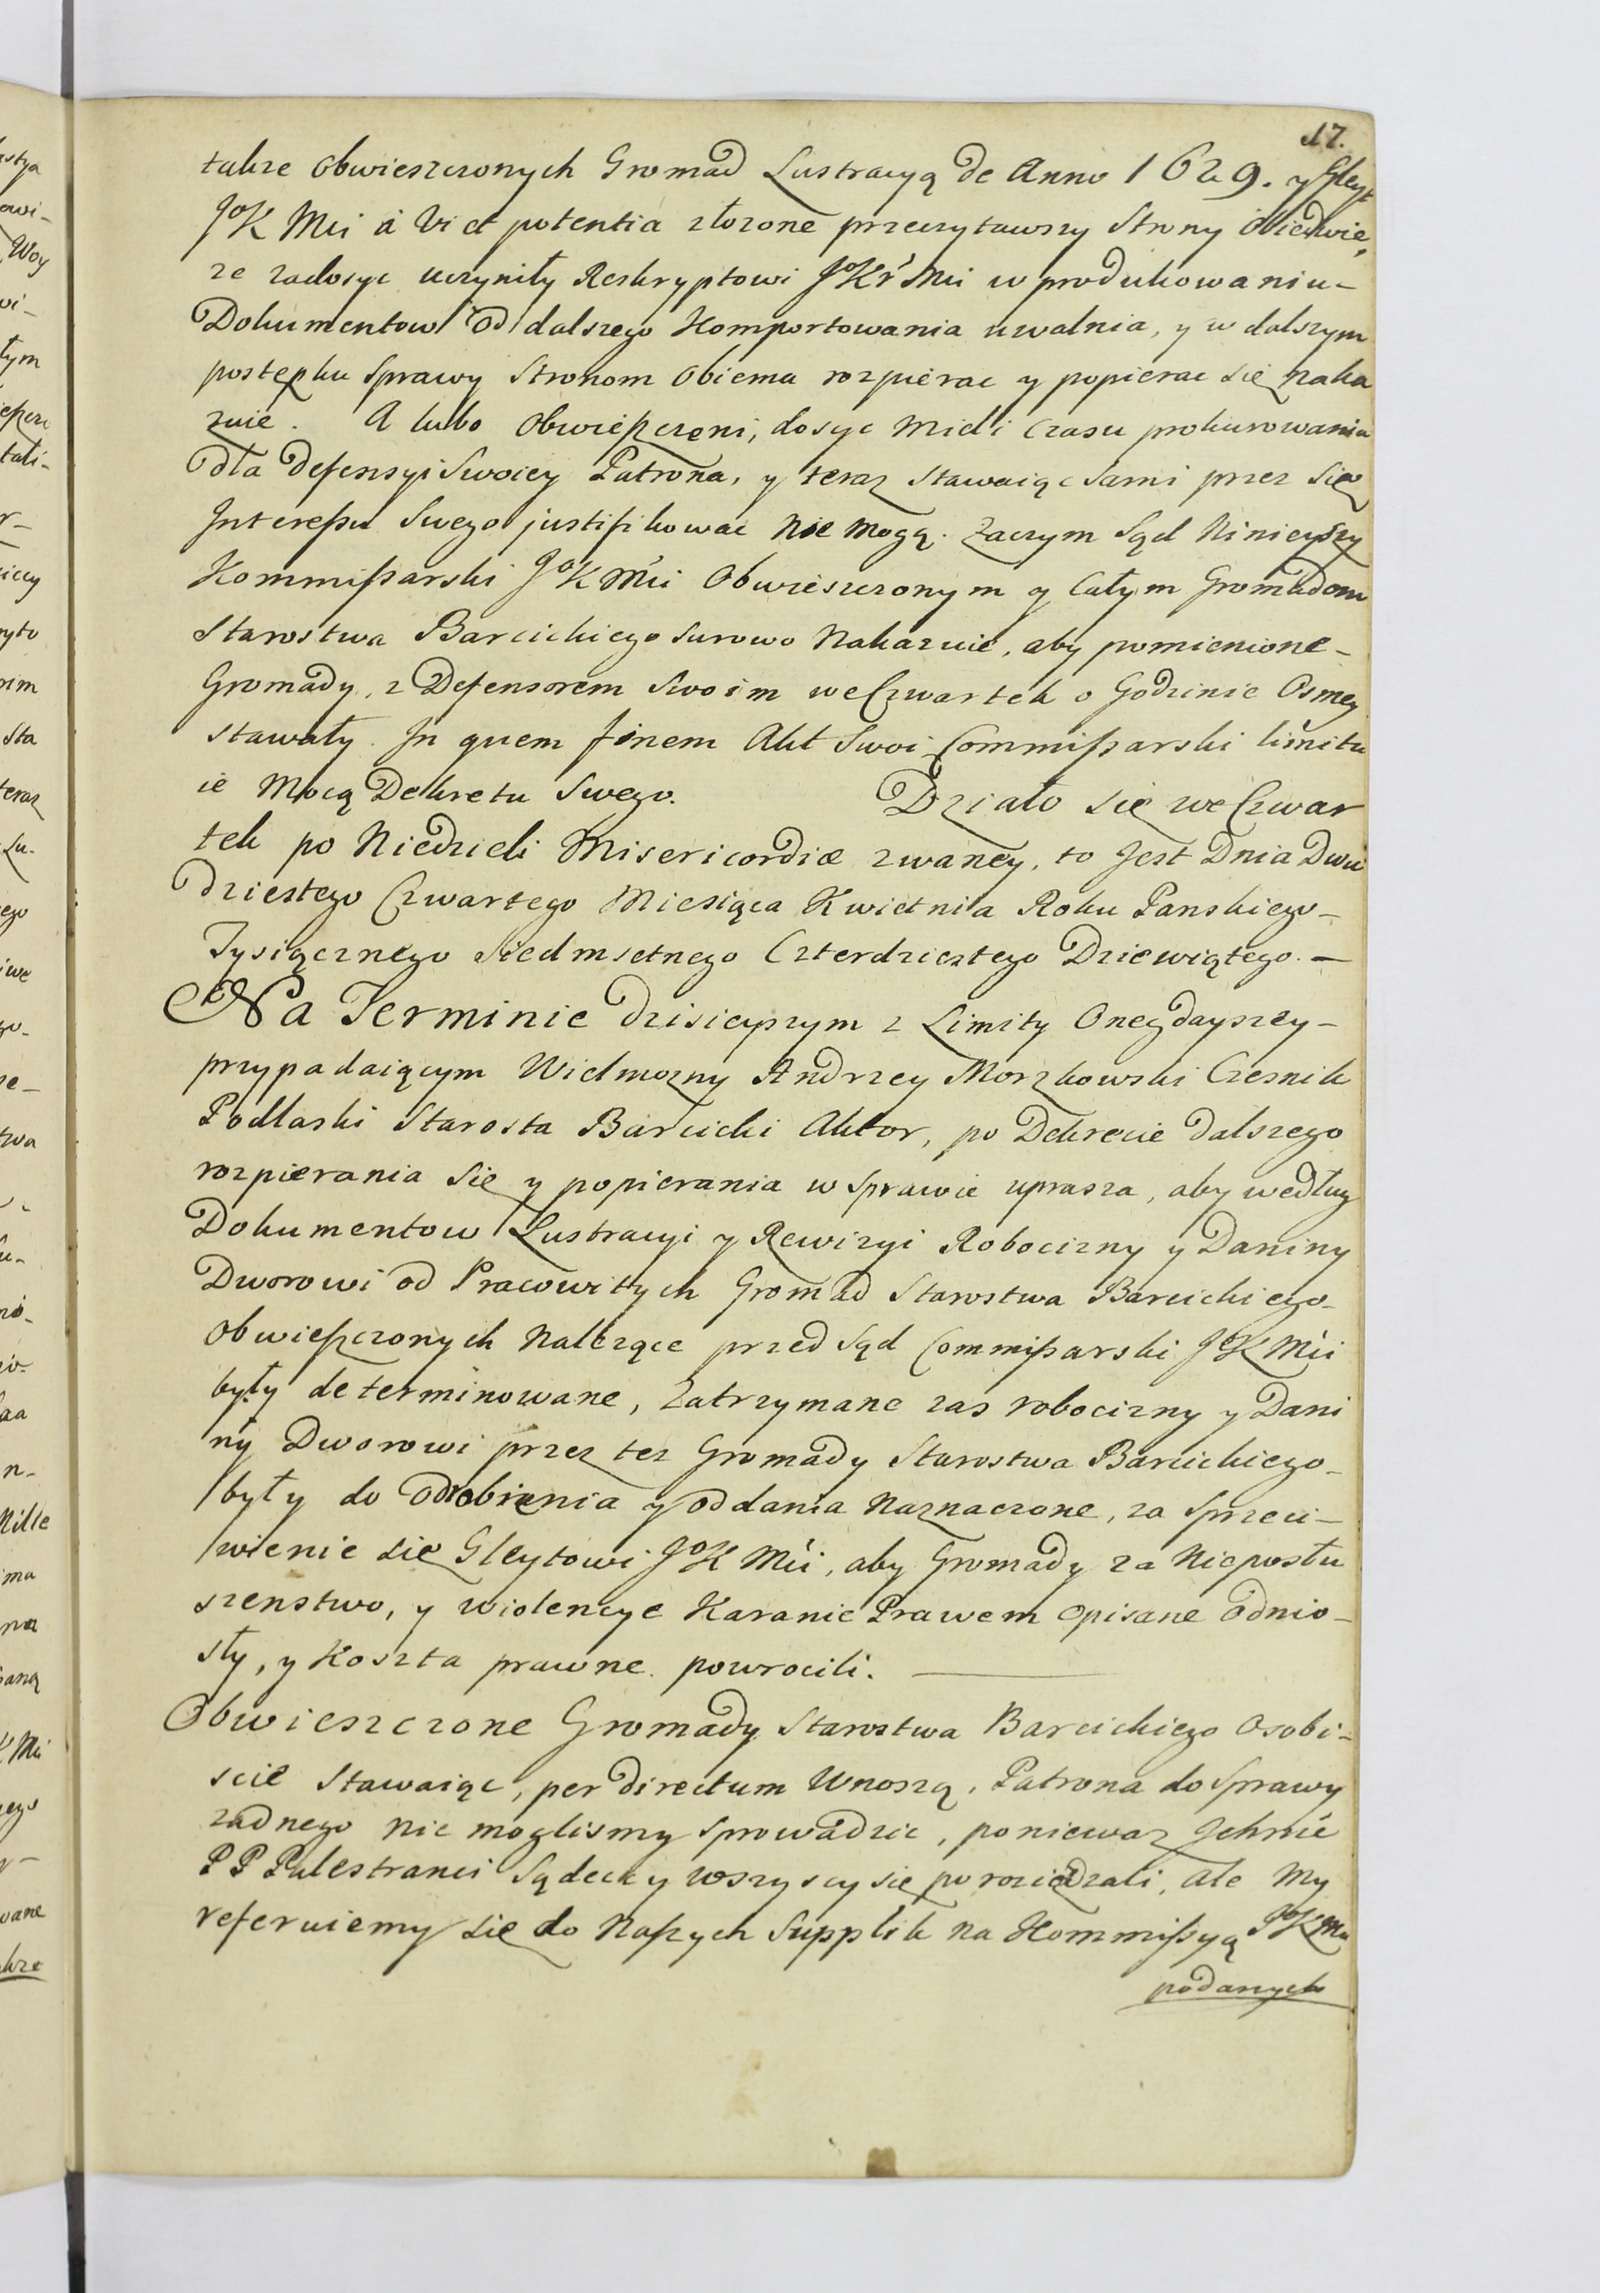 17.
takze obwieszczonych Gromad Lustracyą de Anno 1629. y Gleyt
JoK Mci a vi et potentia złozone przeczytawszy Strony Obiedwie,
ze zadosyc uczyniły Reskryptowi JoKr Mci w produkowaniu-
Dokumentow od dalszego Komportowania uwalnia, y w dalszym
postępku Sprawy Stronom Obiema rozpierac y popierac się naka
zuie. A lubo Obwieszczeni, dosyc Mieli Czasu prokurowania
dla Defensyi Swoiey Patrona, y teraz Stawaiąc Sami przez Się
Interessu Swego justifikowac Nie Mogą. Zaczym Sąd Ninieyszy
Kommissarski JoK Mci Obwieszczonym y Całym Gromadom
Starostwa Barcickiego Surowo Nakazuie, aby pomienione-
Gromady, z Defensorem Swoim we Czwartek o Godzinie Osmey
Stawały. In quem finem Akt Swoi Commissarski limitu
ie Mocą Dekretu Swego. Działo się we Czwar
tek po Niedzieli Misericordiæ zwaney, to Jest Dnia Dwu
dziestego Czwartego Miesiąca Kwietnia Roku Panskiego-
Tysiącznego Siedmsetnego Czterdziestego Dziewiątego.-
Na Terminie dzisieyszym z Limity Onegdayszey-
przypadaiącym Wielmozny Andrzey Morzkowski Czesnik
Podlaski Starosta Barcicki Aktor, po Dekrecie dalszego
rozpierania Się y popierania w Sprawie uprasza, aby według
Dokumentow Lustracyi y Rewizyi Robocizny y Daniny
Dworowi od Pracowitych Gromad Starostwa Barcickiego-
Obwieszczonych Nalezące przed Sąd Commissarski JoK Mci
były determinowane, Zatrzymane zas robocizny y Dani
ny Dworowi przez tez Gromady Starostwa Barcickiego-
były do Odrobienia y oddania Naznaczone, za Sprzeci-
wienie się Gleytowi JoK Mci, aby Gromady za Nieposłu
szenstwo, y wiolencye Karanie Prawem Opisane Odnio-
sły, y Koszta prawne powrocili.
Obwieszczone Gromady Starostwa Barcickiego Osobi-
scie Stawaiąc, per directum Wnoszą, Patrona do Sprawy
zadnego nie moglismy Sprowadzic, poniewaz Ichmć
PP Palestranci Sądeccy wszyscy się porozieżdzali, ale My
referuiemy się do Naszych Supplik na Kommissyą JoK Mci
podanych